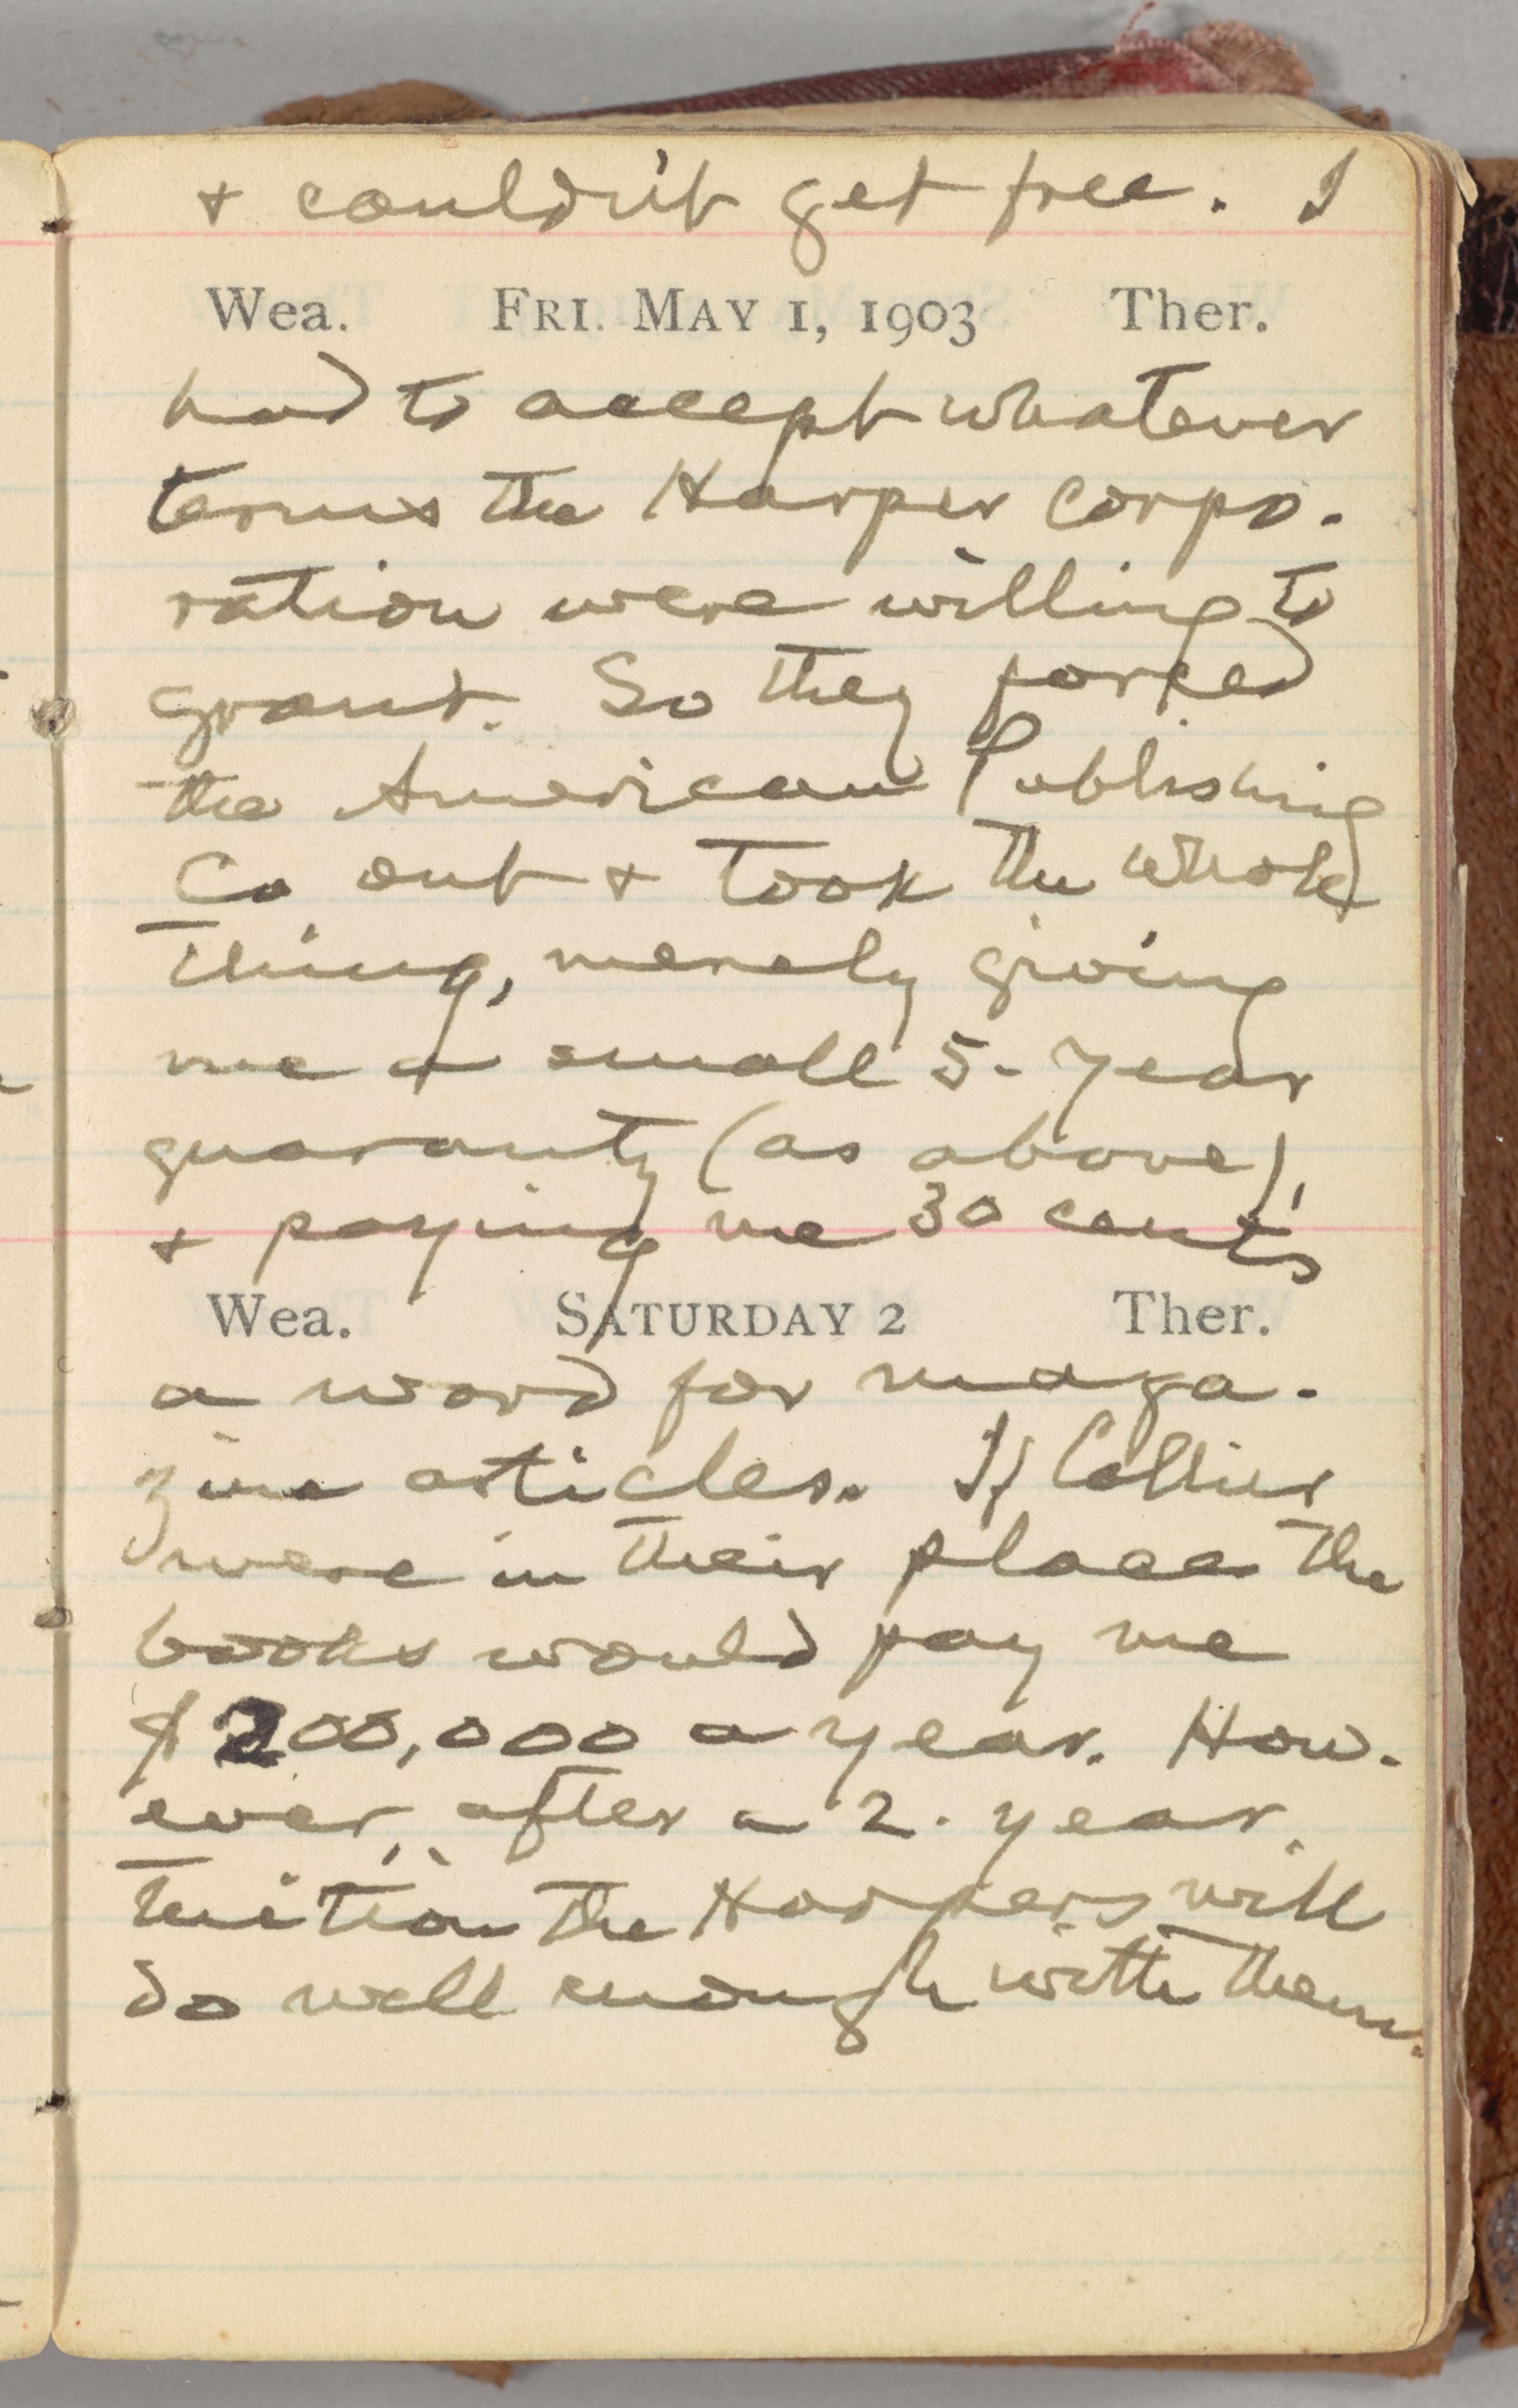 + couldn't get free. I
Wea. FRI. MAY 1, 1903 Ther.
had to accept whatever
terms the Harper corpo-
ration were willing to
grant. So they forced
the American Publishing
Co out + took the whole
thing, merely giving
me a small 5-year
guaranty (as above),
+ paying me 30 cents
Wea. SATURDAY 2 Ther.
a word for maga-
zine articles. If Collier
were in their place the
books would pay me
$200,000 a year. How-
ever, after a 2-year
tuition the Harpers will
do well enough with them.